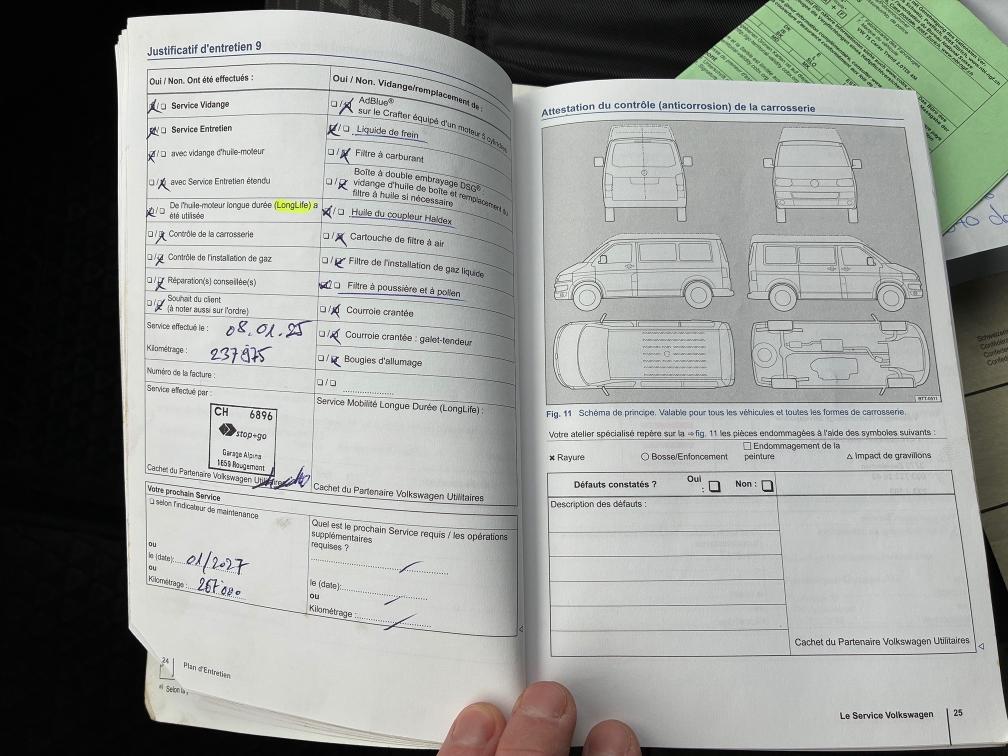 Justificatif d'entretien 9
Oui / Non. Ont été effectués :
Service Vidange
Service Entretien
avec vidange d'huile-moteur
avec Service Entretien étendu
De l'huile-moteur longue durée (LongLife) a
été utilisée
Contrôle de la carrosserie
Contrôle de l'installation de gaz
Réparation(s) conseillée(s)
Souhait du client
(à noter aussi sur l'ordre)
Service effectué le : 08.01.25
Kilométrage : 237975
Numéro de la facture :
Service effectué par :
CH 6896
stop+go
Garage Alpina
1659 Rougemont
Cachet du Partenaire Volkswagen Utilitaires
Oui / Non. Vidange/remplacement de :
AdBlue®
sur le Crafter équipé d'un moteur 5 cylindres
Liquide de frein
Filtre à carburant
Boîte à double embrayage DSG®
vidange d'huile de boîte et remplacement du
filtre à huile si nécessaire
Huile du coupleur Haldex
Cartouche de filtre à air
Filtre de l'installation de gaz liquide
Filtre à poussière et à pollen
Courroie crantée
Courroie crantée : galet-tendeur
Bougies d'allumage
Service Mobilité Longue Durée (LongLife) :
Cachet du Partenaire Volkswagen Utilitaires
Votre prochain Service
selon l'indicateur de maintenance
ou
le (date): 01/2027
ou
Kilométrage : 267'000
Quel est le prochain Service requis / les opérations
supplémentaires
requises ?
le (date):
ou
Kilométrage :
24
Plan d'Entretien
Attestation du contrôle (anticorrosion) de la carrosserie
B7T-0511
Fig. 11 Schéma de principe. Valable pour tous les véhicules et toutes les formes de carrosserie.
Votre atelier spécialisé repère sur la ⇒ fig. 11 les pièces endommagées à l'aide des symboles suivants :
× Rayure
○ Bosse/Enfoncement
□ Endommagement de la
peinture
△ Impact de gravillons
Défauts constatés ?
Oui
:
Non :
Description des défauts :
Cachet du Partenaire Volkswagen Utilitaires
Le Service Volkswagen 25